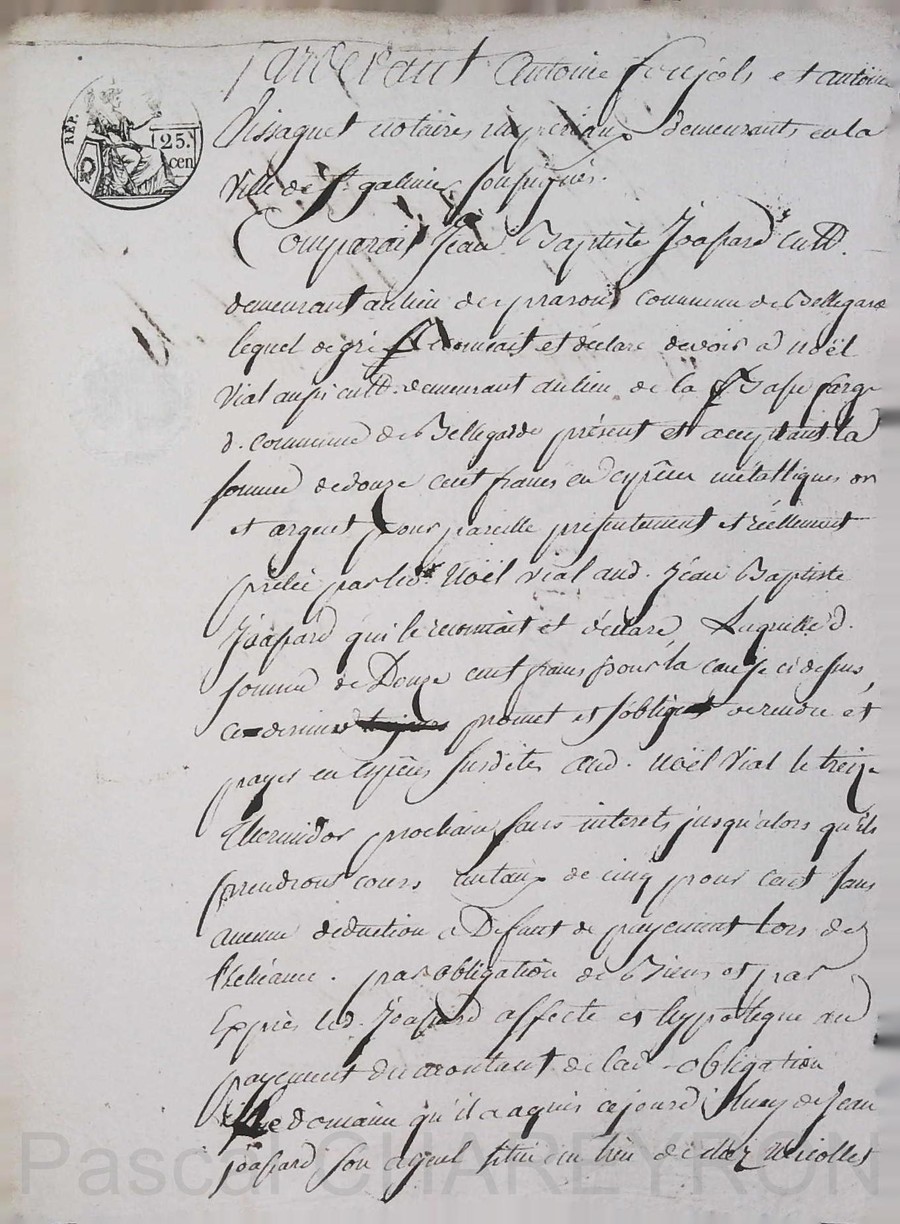 RÉP.
25.
cen
Pardevant Antoine foujols et antoine
Bissaguet notaires impériaux demeurants en la
Ville de St. galmier soussignés.
Comparait Jean Baptiste Joassard cultr.
demeurant au lieu des prarons commune de Bellegarde
lequel de gré reconnait et déclare devoir à noël
Vial aussi cultr. demeurant au lieu de la
d. commune de Bellegarde présent et acceptant la
somme de douze cent francs en espèces métalliques or
et argent pour pareille présentement et réellement
prêtée par led. Noël vial aud. Jean Baptiste
Joassard qui le reconnait et déclare, Laquelle d.
somme de Douze cent francs pour la cause ci dessus,
ce dernier promet et s'oblige de rendre et
payer en espèces susdites aud. noël Vial le treize
thermidor prochain sans interets jusqu'alors qu'ils
prendront cours au taux de cinq pour cent sans
aucune déduction à Défaut de payement lors de
l'échéance. par obligation de Biens et par
Exprès led. Joassard affecte et hypotèque au
payement du montant de lad. obligation
domaine qu'il a aquis cejourd'huy de Jean
Joassard son ayeul situé au lieu de chez nicollet
Pascal CHAREYRON